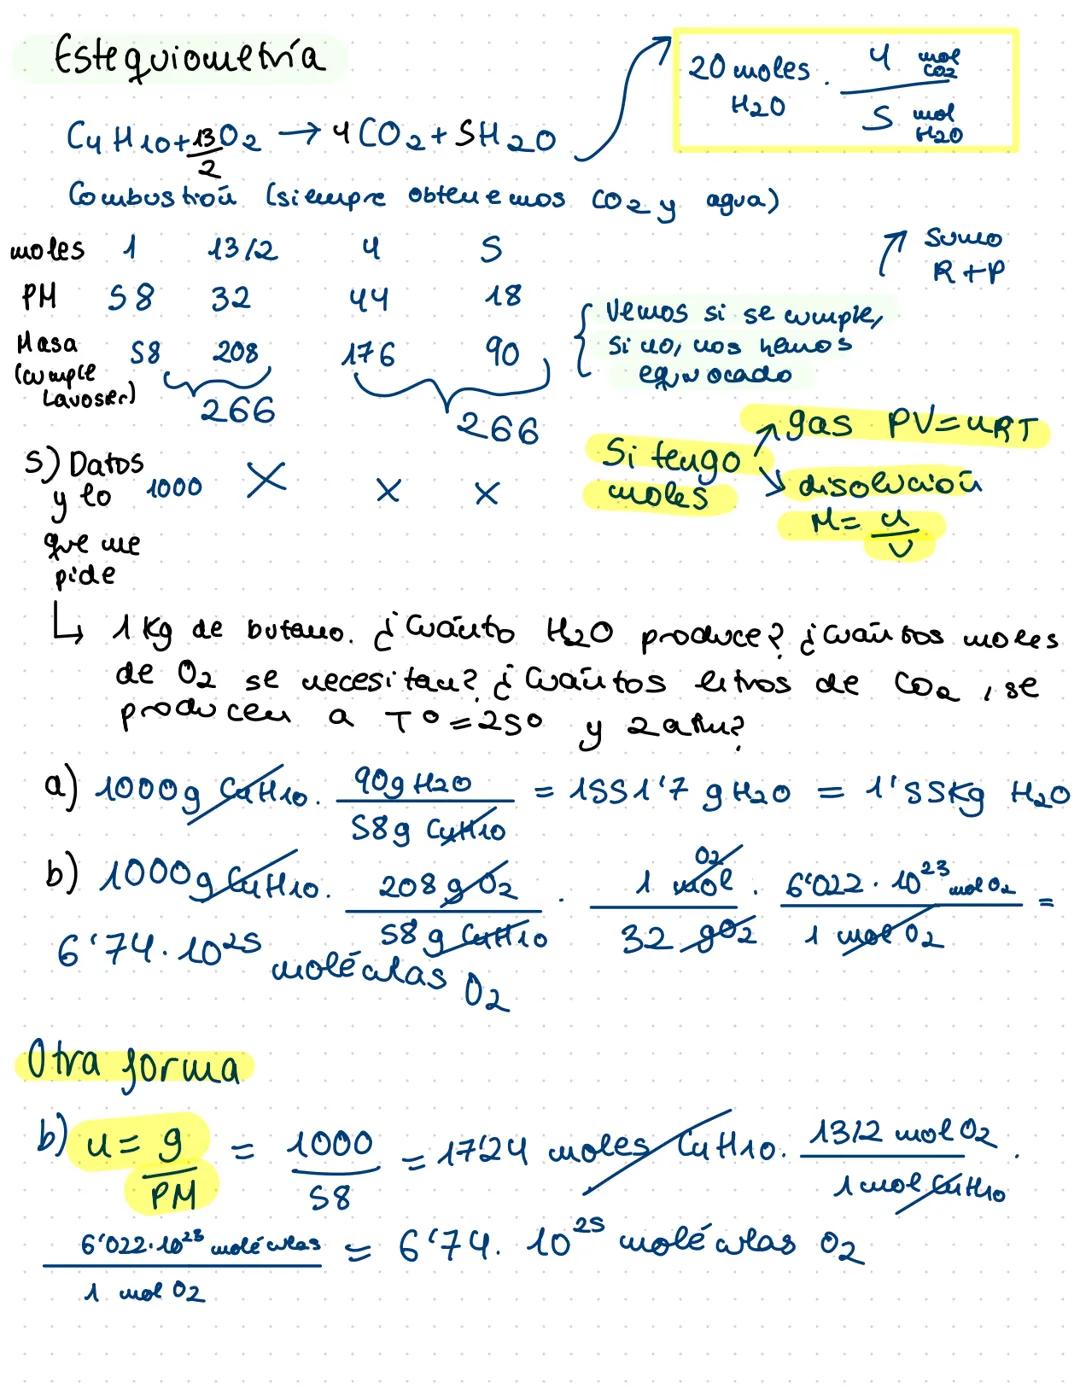 Estequiometría
20 moles H2O · 4 mol CO2 / 5 mol H2O
C4H10 + 13/2 O2 → 4CO2 + 5H2O
Combustión (siempre obtenemos CO2 y agua)
moles 1 13/2 4 5
↗ Sumo R+P
PM 58 32 44 18
Masa (cumple Lavoser) 58 208 176 90
{ Vemos si se cumple,
si no, nos hemos
equivocado
266 266
Si tengo moles
↗ gas PV=nRT
↘ disolución
M = n/V
5) Datos y lo que me pide 1000 X X X
↳ 1 Kg de butano. ¿Cuánto H2O produce? ¿Cuántos moles
de O2 se necesitan? ¿Cuántos litros de CO2, se
producen a Tº=25º y 2 atm?
a) 1000g C4H10 · 90g H2O / 58g C4H10 = 1551'7 g H2O = 1'55Kg H2O
b) 1000g C4H10 · 208 g O2 / 58 g C4H10 · 1 mol O2 / 32 g O2 · 6'022 · 10^23 mol O2 / 1 mol O2 =
6'74 · 10^25 moléculas O2
Otra forma
b) n = g/PM = 1000/58 = 17'24 moles C4H10 · 13/2 mol O2 / 1 mol C4H10 ·
6'022·10^23 moléculas / 1 mol O2 = 6'74 · 10^25 moléculas O2